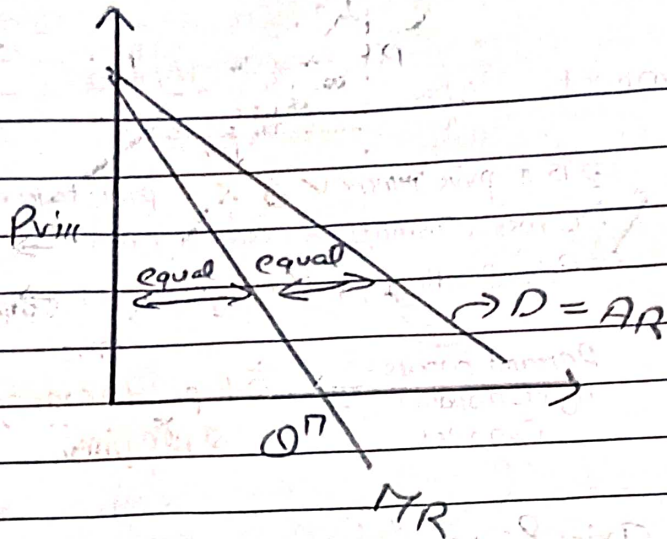 Priii
equal equal
D = AR
Qⁿ
MR